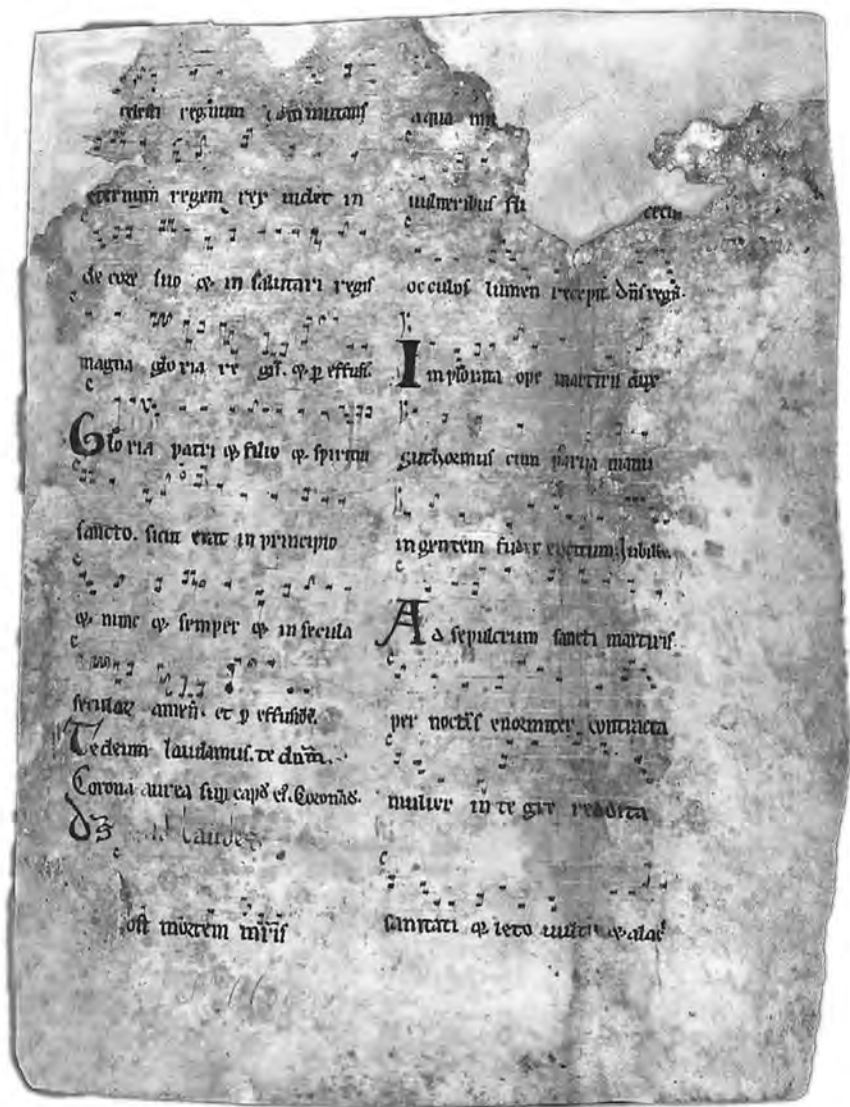 celesti regnum commutans
eternum regem rex uidet in
decore suo ⁊ in salutari regis
magna gloria re gis. ⁊ p effusi.
Gloria patri ⁊ filio ⁊ spiritui
sancto. sicut erat in principio
⁊ nunc ⁊ semper ⁊ in secula
seculoꝝ amen. et p effusiōē.
Tedeum laudamus. te dnm̄.
Corona aurea sup capđ ei. Coronađ.
ad laudes.
ost mortem mr̄is
aqua
uulneribus cecus
occulos lumen recepit. dn̄s regn̄.
Implorata ope martiris dux
guthormus cum parua manu
ingentem fudit exercitum. Jubilat.
Ad sepulcrum sancti martiris.
per noctes enormiter contracta
mulier in te gre reddita
sanitati ⁊ leto uultu ⁊ alac